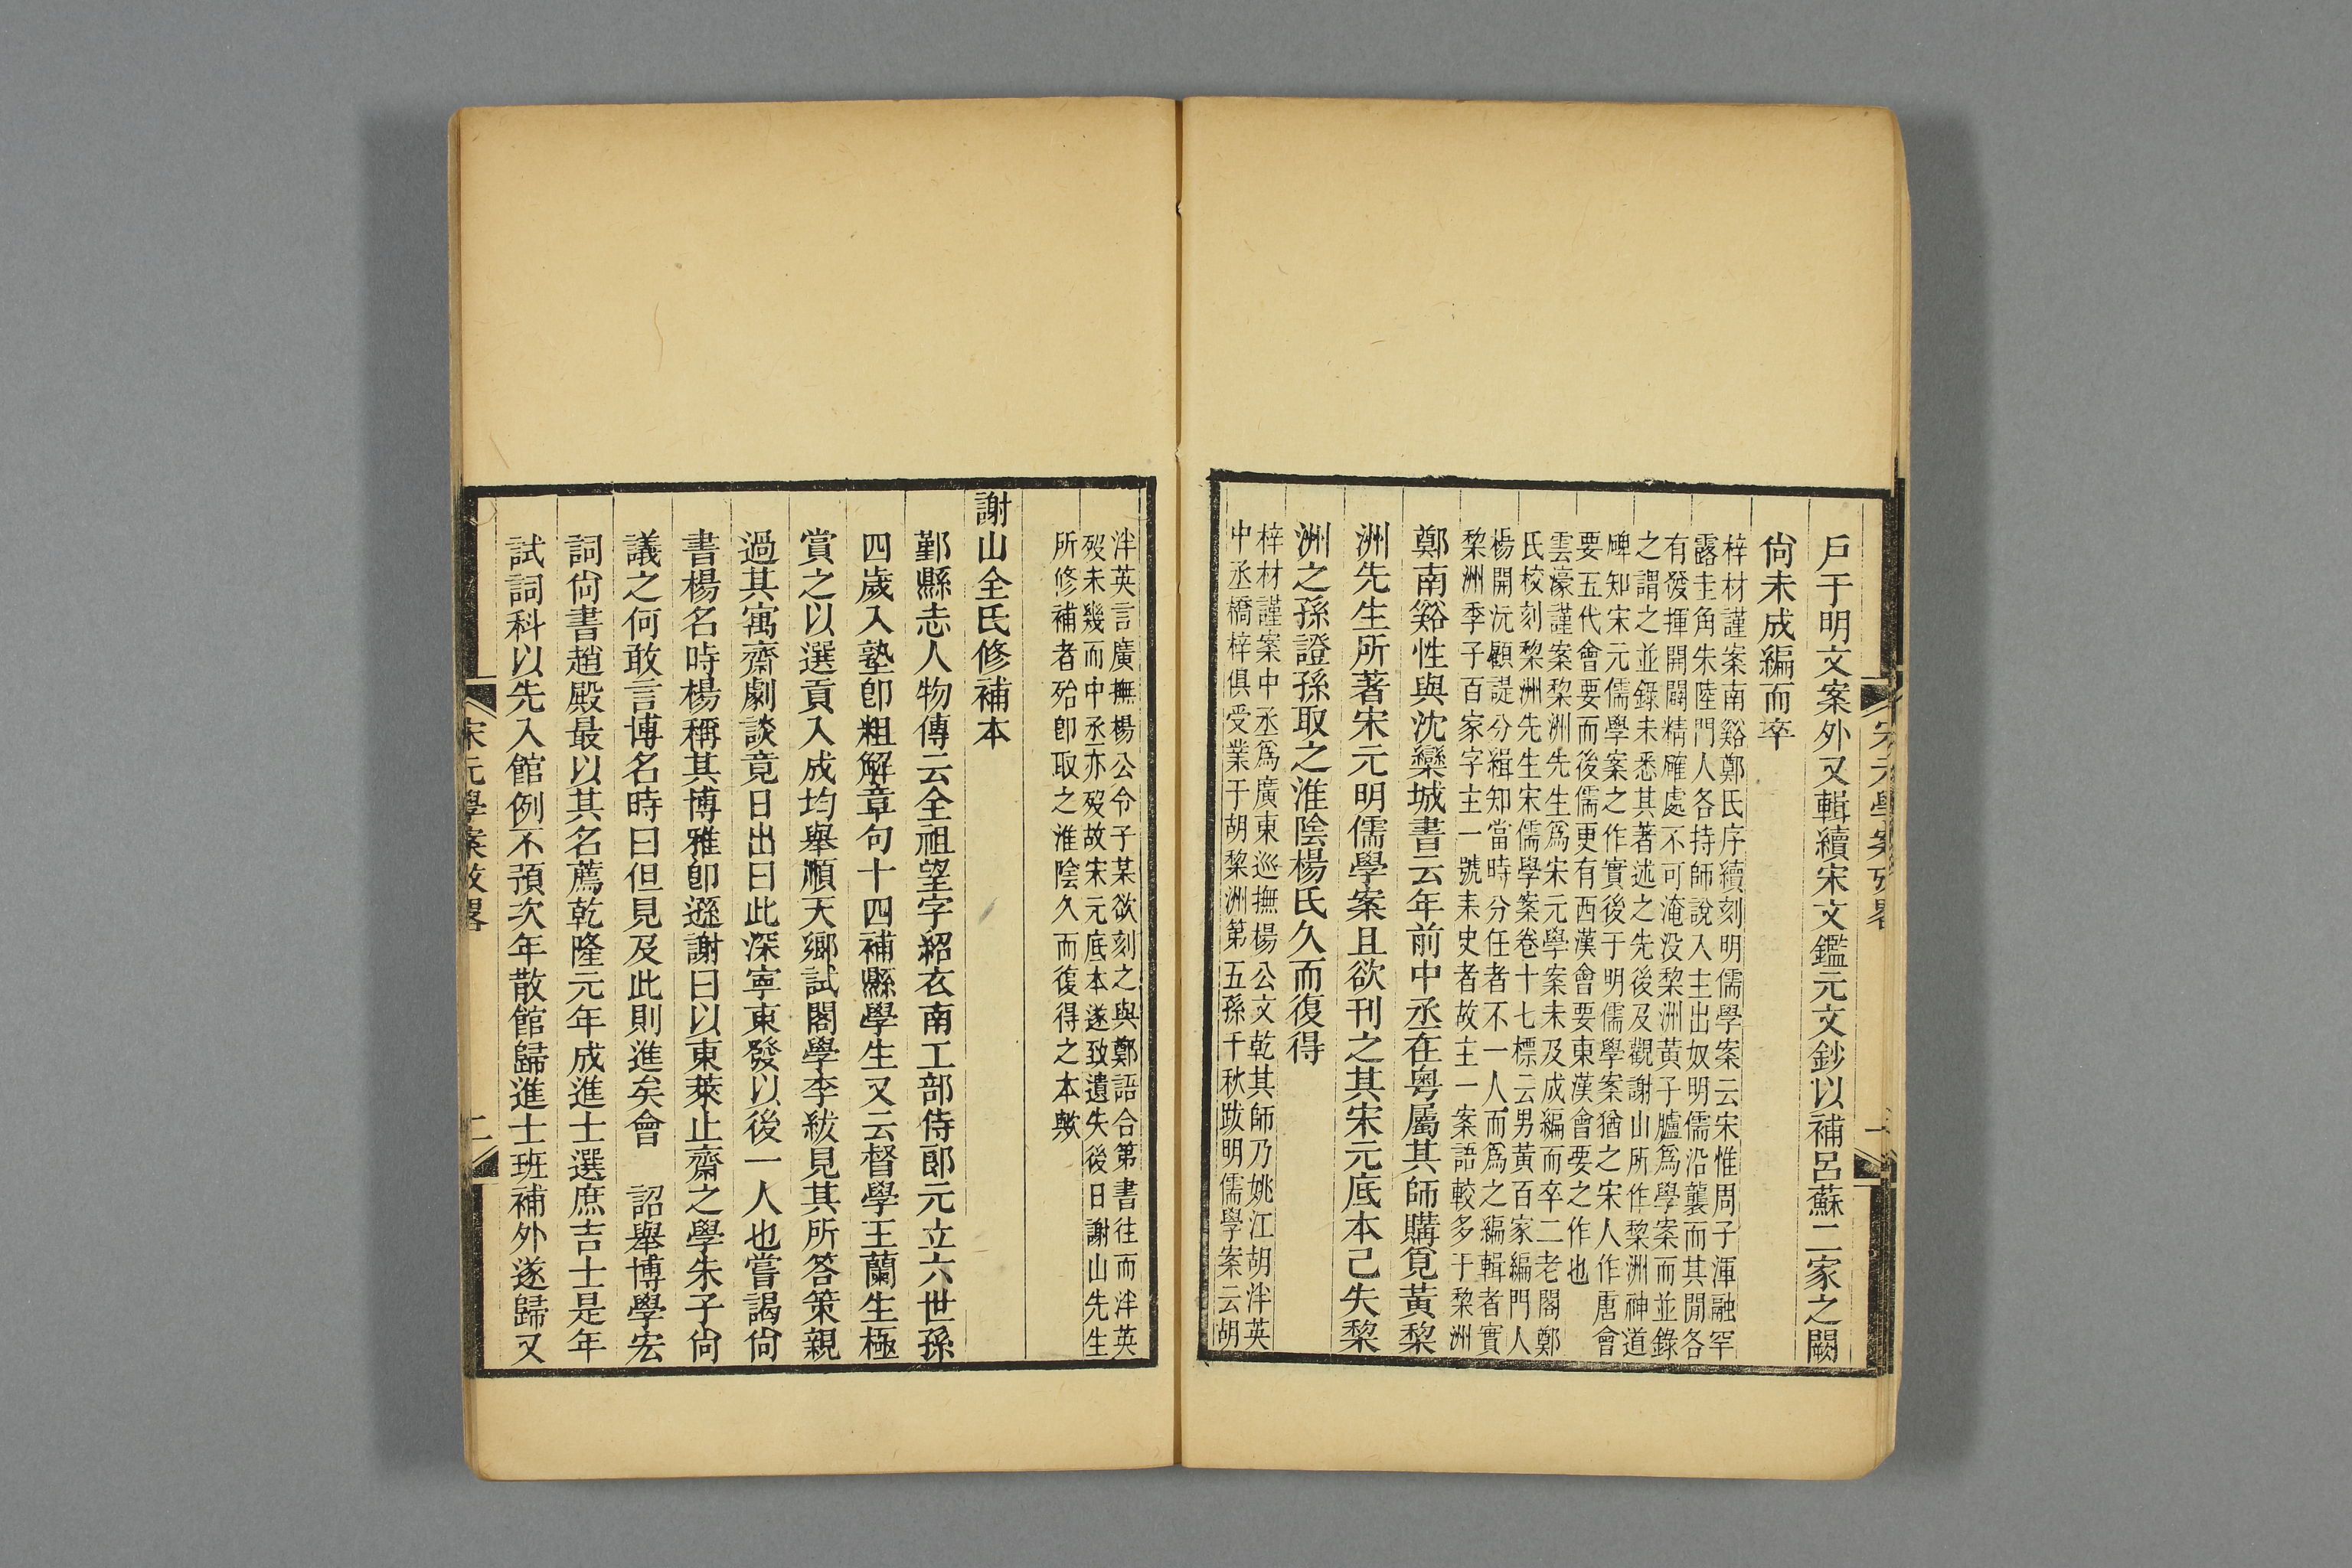 戶于明文案外又輯續宋文鑑元文鈔以補呂蘇二家之闕
尙未成編而卒
梓材謹案南谿鄭氏序續刻明儒學案云宋惟周子渾融罕
露圭角朱陸門人各持師說入主出奴明儒沿襲而其閒各
有發揮開闢精確處不可淹没黎洲黃子臚爲學案而並錄
之謂之並錄未悉其著述之先後及觀謝山所作黎洲神道
碑知宋元儒學案之作實後于明儒學案猶之宋人作唐會
要五代會要而後儒更有西漢會要東漢會要之作也
雲濠謹案黎洲先生爲宋元學案未及成編而卒二老閣鄭
氏校刻黎洲先生宋儒學案卷十七標云男黃百家編門人
楊開沅顧諟分緝知當時分任者不一人而爲之編輯者實
黎洲季子百家字主一號耒史者故主一案語較多于黎洲
鄭南谿性與沈欒城書云年前中丞在粤屬其師購覓黃黎
洲先生所著宋元明儒學案且欲刊之其宋元底本己失黎
洲之孫證孫取之淮陰楊氏久而復得
梓材謹案中丞爲廣東巡撫楊公文乾其師乃姚江胡泮英
中丞橋梓俱受業于胡黎洲第五孫千秋跋明儒學案云胡
泮英言廣撫楊公令子某欲刻之與鄭語合第書往而泮英
歿未幾而中丞亦歿故宋元底本遂致遺失後日謝山先生
所修補者殆卽取之淮陰久而復得之本歟
謝山全氏修補本
鄞縣志人物傳云全祖望字紹衣南工部侍郎元立六世孫
四歲入塾卽粗解章句十四補縣學生又云督學王蘭生極
賞之以選貢入成均舉順天鄉試閣學李紱見其所答策親
過其寓齋劇談竟日出曰此深寧東發以後一人也嘗謁尙
書楊名時楊稱其博雅卽遜謝曰以東萊止齋之學朱子尙
議之何敢言博名時曰但見及此則進矣會　詔舉博學宏
詞尙書趙殿最以其名薦乾隆元年成進士選庶吉士是年
試詞科以先入館例不預次年散館歸進士班補外遂歸又
宋元學案攷畧
二